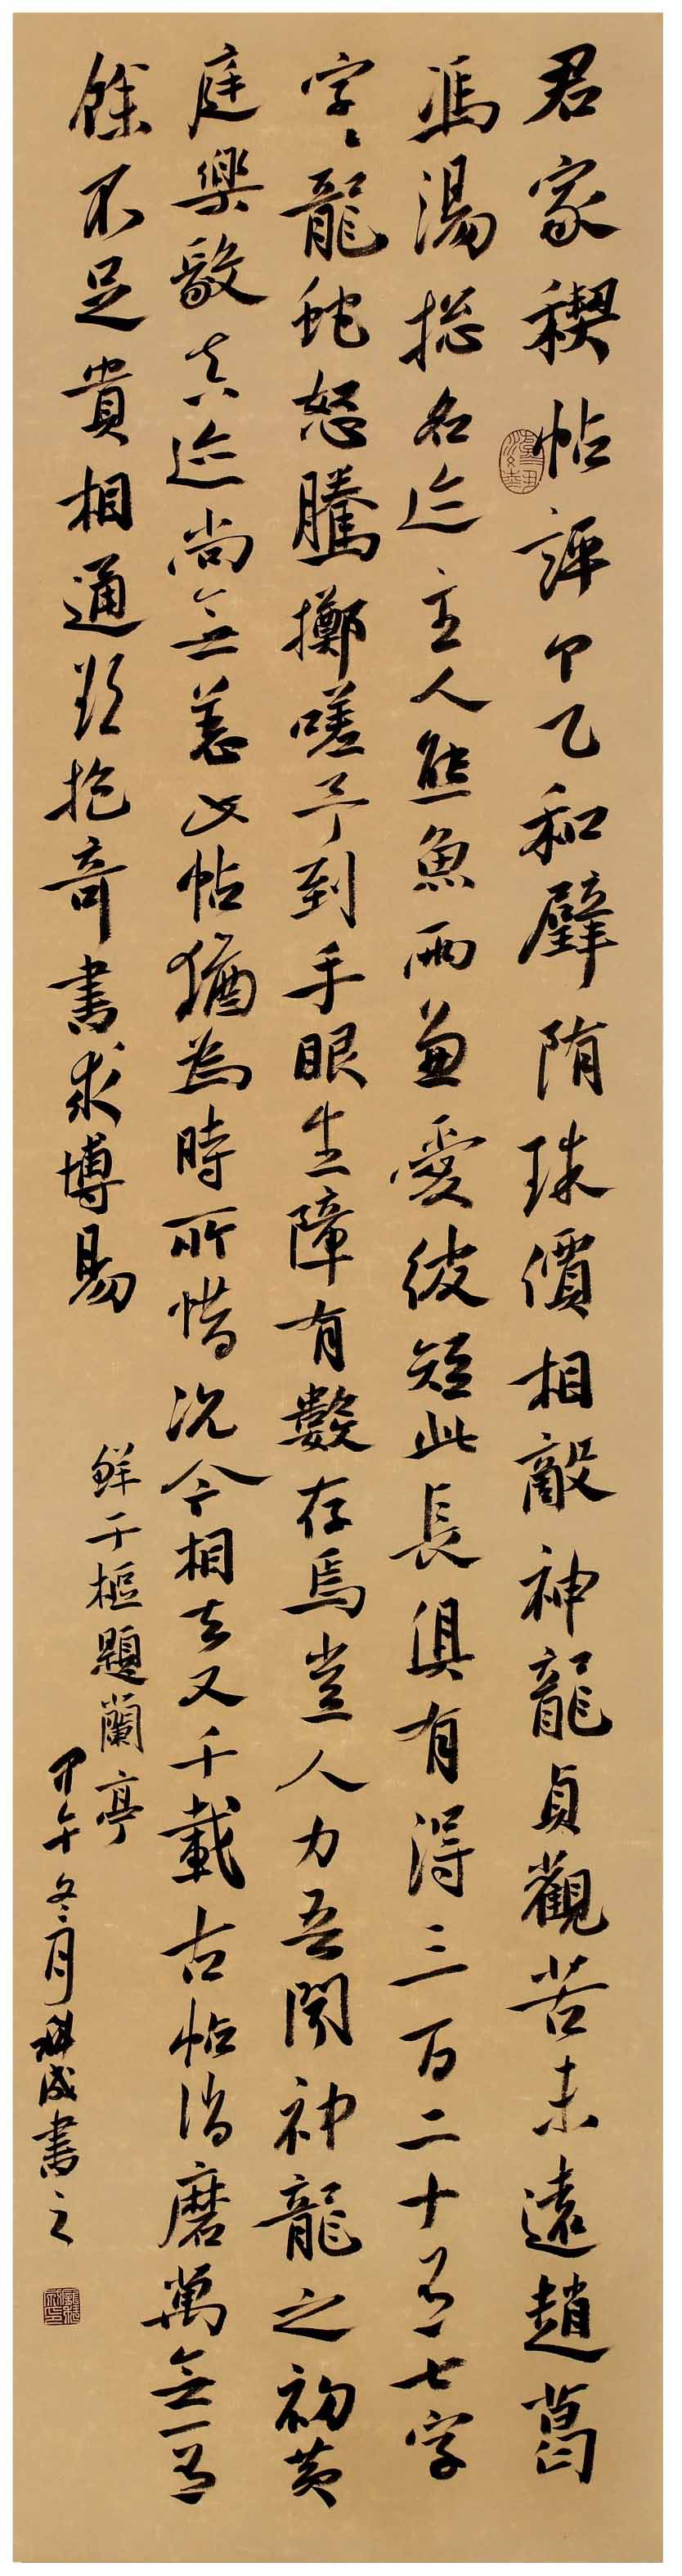 君家禊帖評甲乙和璧隋珠價相敵神龍貞觀苦未遠趙葛
馮湯揔名迹主人熊魚兩兼愛彼短此長俱有得三百二十有七字
字〻龍蛇怒騰擲嗟予到手眼生障有數存焉豈人力吾聞神龍之初黄
庭樂毅真迹尚無恙此帖猶為時所惜况今相去又千載古帖消磨萬無一有
餘不足貴相通欵抱奇書求博易
鲜于樞題蘭亭
甲午冬月
成書之